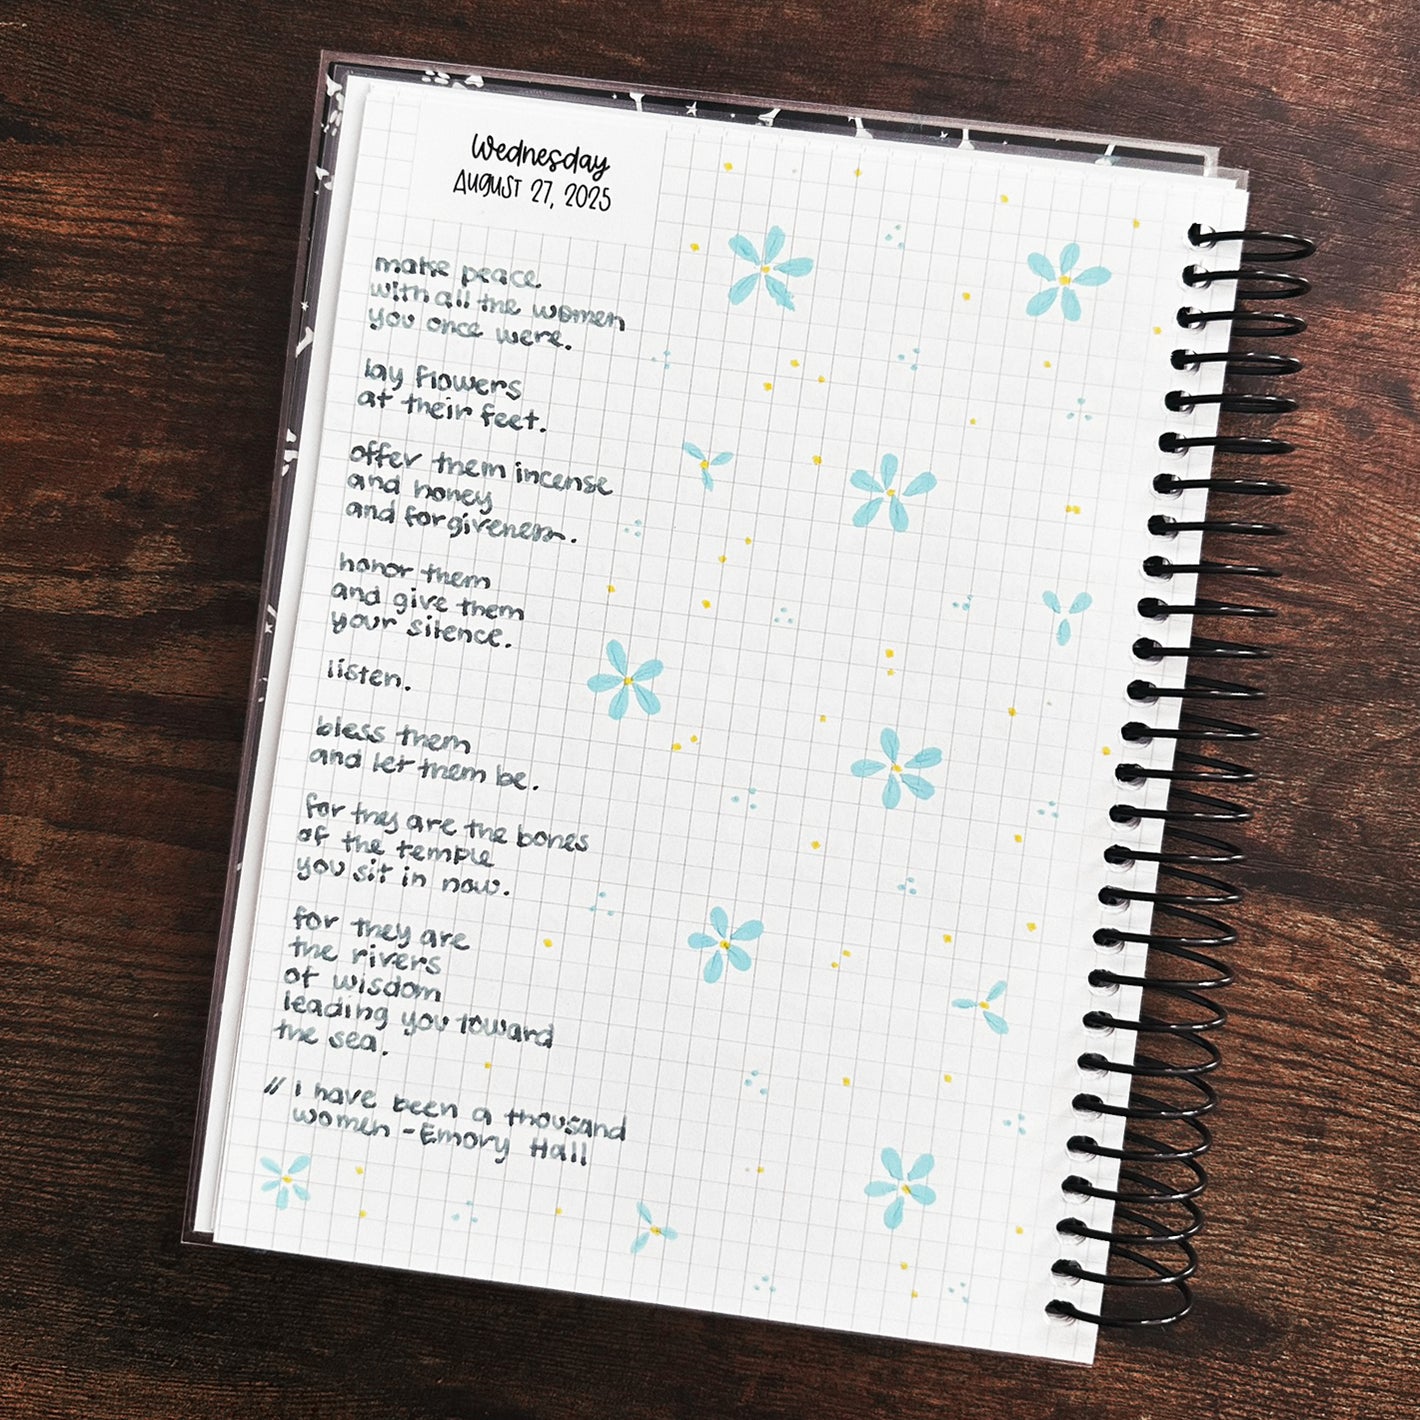 Wednesday
AUGUST 27, 2025
make peace
with all the women
you once were.
lay flowers
at their feet.
offer them incense
and honey
and forgiveness.
honor them
and give them
your silence.
listen.
bless them
and let them be.
for they are the bones
of the temple
you sit in now.
for they are
the rivers
of wisdom
leading you toward
the sea.
// i have been a thousand
women - Emory Hall